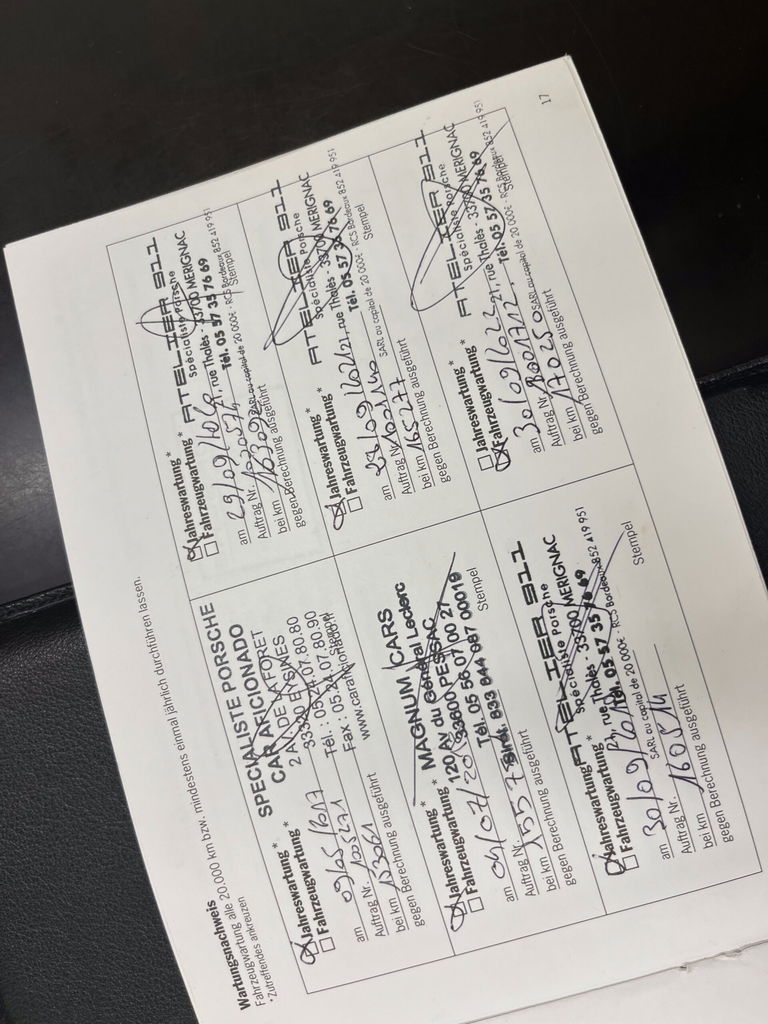 Wartungsnachweis
Fahrzeugwartung alle 20.000 km bzw. mindestens einmal jährlich durchführen lassen.
*Zutreffendes ankreuzen
Jahreswartung*
Fahrzeugwartung*
SPECIALISTE PORSCHE
CAR AFICIONADO
2 AV. DE LA FORET
33320 EYSINES
Tél.: 05.24.07.80.80
Fax : 05.24.07.80.90
www.caraficionado.fr
Stempel
am 09/05/2017
Auftrag Nr. 1005271
bei km 153361
gegen Berechnung ausgeführt
Jahreswartung*
Fahrzeugwartung*
MAGNUM CARS
120 AV du Général Leclerc
33600 PESSAC
Tél. 05 56 07 00 27
Siret. 833 844 087 00019
Stempel
am 04/07/20
Auftrag Nr.
bei km
gegen Berechnung ausgeführt
Jahreswartung*
Fahrzeugwartung*
ATELIER 911
Spécialiste Porsche
21, rue Thalès - 33700 MERIGNAC
Tél. 05 57 35 76 69
SARL au capital de 20 000€ - RCS Bordeaux 852 419 951
Stempel
am 30/09/
Auftrag Nr.
bei km 160514
gegen Berechnung ausgeführt
Jahreswartung*
Fahrzeugwartung*
ATELIER 911
Spécialiste Porsche
21, rue Thalès - 33700 MERIGNAC
Tél. 05 57 35 76 69
SARL au capital de 20 000€ - RCS Bordeaux 852 419 951
Stempel
am 29/09/2020
Auftrag Nr.
bei km
gegen Berechnung ausgeführt
Jahreswartung*
Fahrzeugwartung*
ATELIER 911
Spécialiste Porsche
21, rue Thalès - 33700 MERIGNAC
Tél. 05 57 35 76 69
SARL au capital de 20 000€ - RCS Bordeaux 852 419 951
Stempel
am 23/09/2021
Auftrag Nr. 1001140
bei km 165277
gegen Berechnung ausgeführt
Jahreswartung*
Fahrzeugwartung*
ATELIER 911
Spécialiste Porsche
21, rue Thalès - 33700 MERIGNAC
Tél. 05 57 35 76 69
SARL au capital de 20 000€ - RCS Bordeaux 852 419 951
Stempel
am 30/09/2022
Auftrag Nr. 1001712
bei km 170250
gegen Berechnung ausgeführt
17